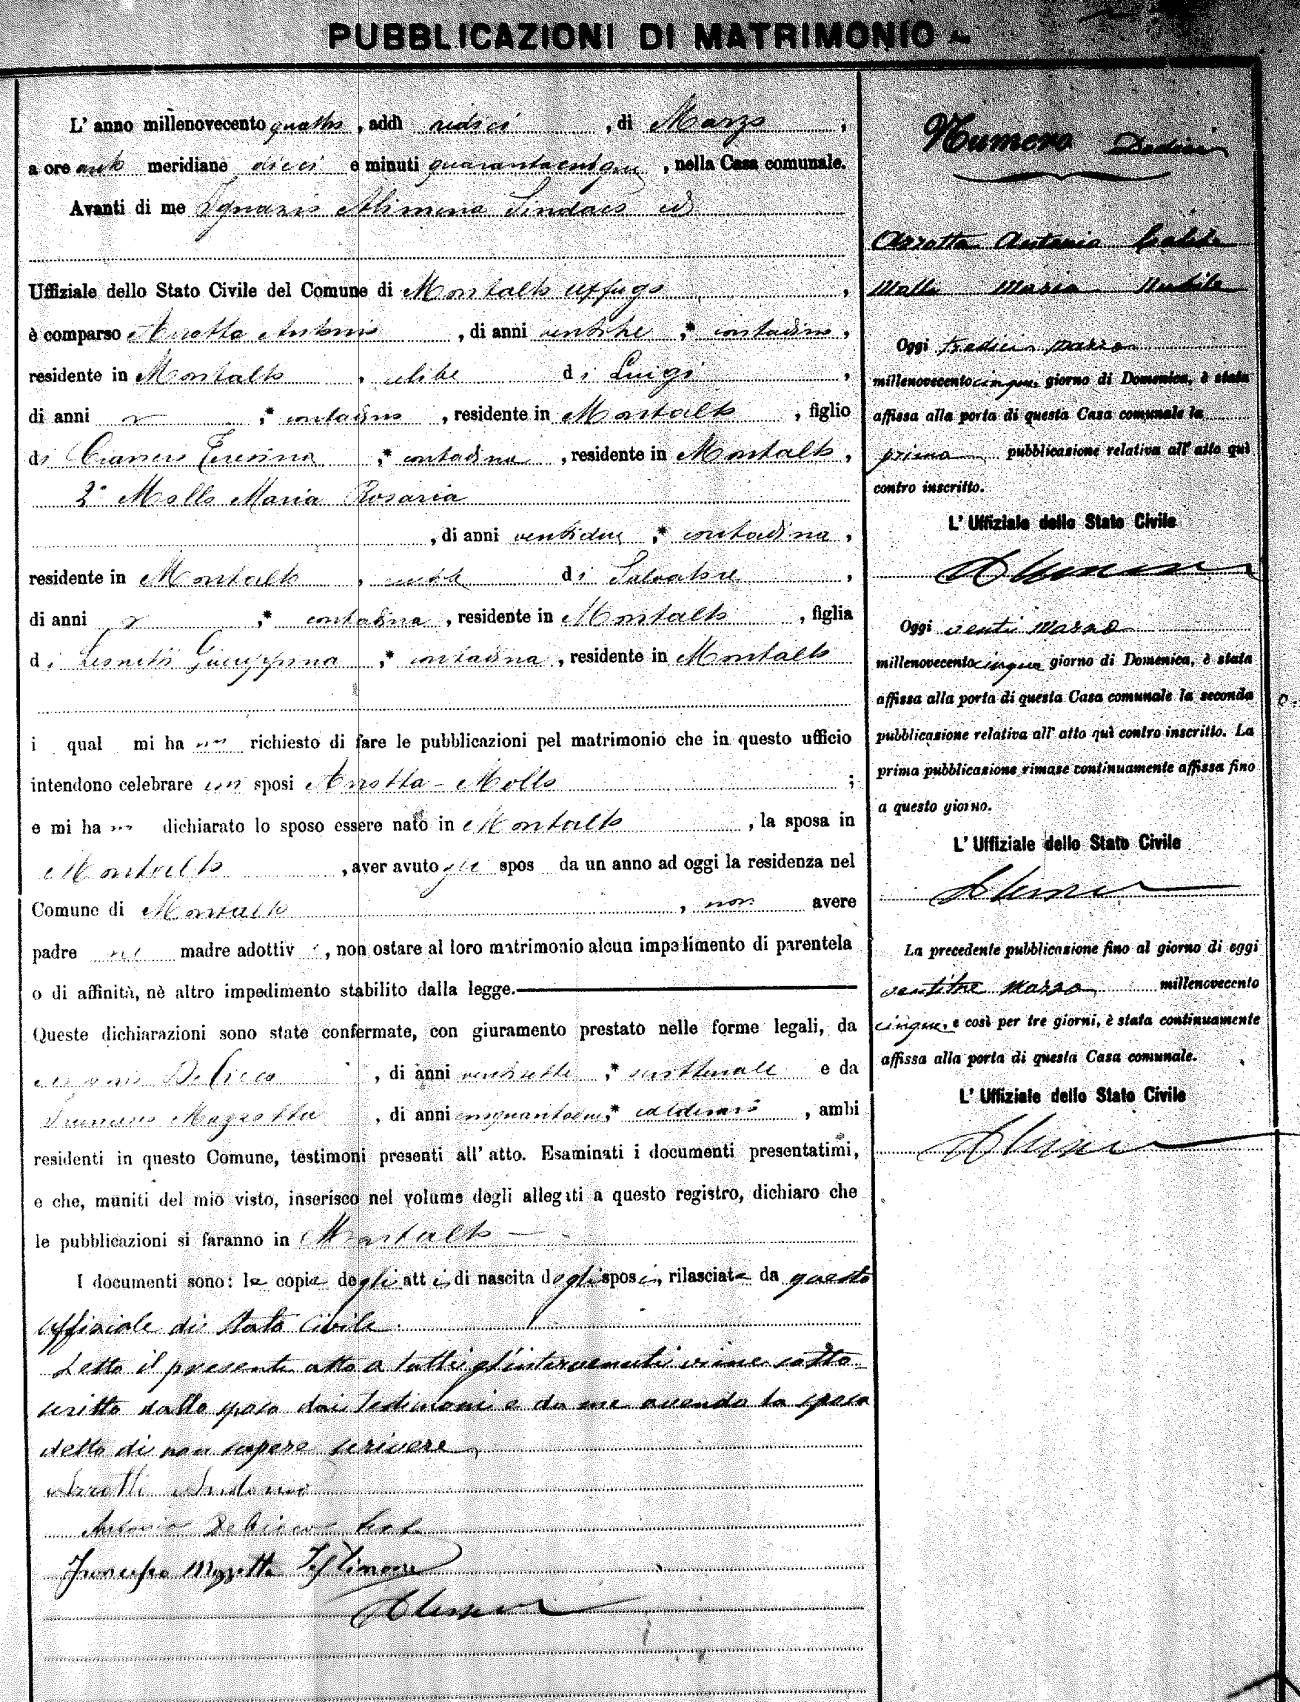 PUBBLICAZIONI DI MATRIMONIO
L' anno millenovecento quattro, addì, di Marzo,
a ore anti meridiane dieci e minuti quarantacinque, nella Casa comunale.
Avanti di me Ignazio Alimena Sindaco
Uffiziale dello Stato Civile del Comune di Montalto Uffugo,
è comparso Arrotta Antonio, di anni ventitre, * contadino,
residente in Montalto, celibe di Luigi,
di anni, * contadino, residente in Montalto, figlio
di Teresina, * contadina, residente in Montalto,
2° Mollo Maria Rosaria
, di anni ventidue, * contadina,
residente in Montalto, nubile di Salvatore,
di anni, * contadina, residente in Montalto, figlia
di Giuseppina, * contadina, residente in Montalto
i qual mi ha nno richiesto di fare le pubblicazioni pel matrimonio che in questo ufficio
intendono celebrare sposi Arrotta - Mollo;
e mi ha nno dichiarato lo sposo essere nato in Montalto, la sposa in
Montalto, aver avuto gli spos da un anno ad oggi la residenza nel
Comune di Montalto, non avere
padre nè madre adottiv i, non ostare al loro matrimonio alcun impedimento di parentela
o di affinità, nè altro impedimento stabilito dalla legge.
Queste dichiarazioni sono state confermate, con giuramento prestato nelle forme legali, da
De Cicco, di anni ventisette, * scritturale e da
Francesco Mazzotta, di anni, * calderaio, ambi
residenti in questo Comune, testimoni presenti all' atto. Esaminati i documenti presentatimi,
e che, muniti del mio visto, inserisco nel volume degli allegati a questo registro, dichiaro che
le pubblicazioni si faranno in Montalto
I documenti sono: le copie degli atti di nascita degli sposi, rilasciate da questo
uffiziale di Stato Civile.
Letto il presente atto a tutti gl'intervenuti viene sotto
scritto dallo sposo dai testimoni e da me avendo la sposa
detto di non sapere scrivere
Arrotti Andonio
Antonio De Cicco test
Francesco Mazzotta Testimone
Alimena
Numero Dodici
Arrotta Antonio Celibe
Mollo Maria Nubile
Oggi tredici marzo
millenovecento cinque giorno di Domenica, è stata
affissa alla porta di questa Casa comunale la
prima pubblicazione relativa all' atto quì
contro inscritto.
L' Uffiziale dello Stato Civile
Alimena
Oggi venti marzo
millenovecento cinque giorno di Domenica, è stata
affissa alla porta di questa Casa comunale la seconda
pubblicazione relativa all' atto quì contro inscritto. La
prima pubblicazione rimase continuamente affissa fino
a questo giorno.
L' Uffiziale dello Stato Civile
Alimena
La precedente pubblicazione fino al giorno di oggi
ventitre marzo millenovecento
cinque, e così per tre giorni, è stata continuamente
affissa alla porta di questa Casa comunale.
L' Uffiziale dello Stato Civile
Alimena